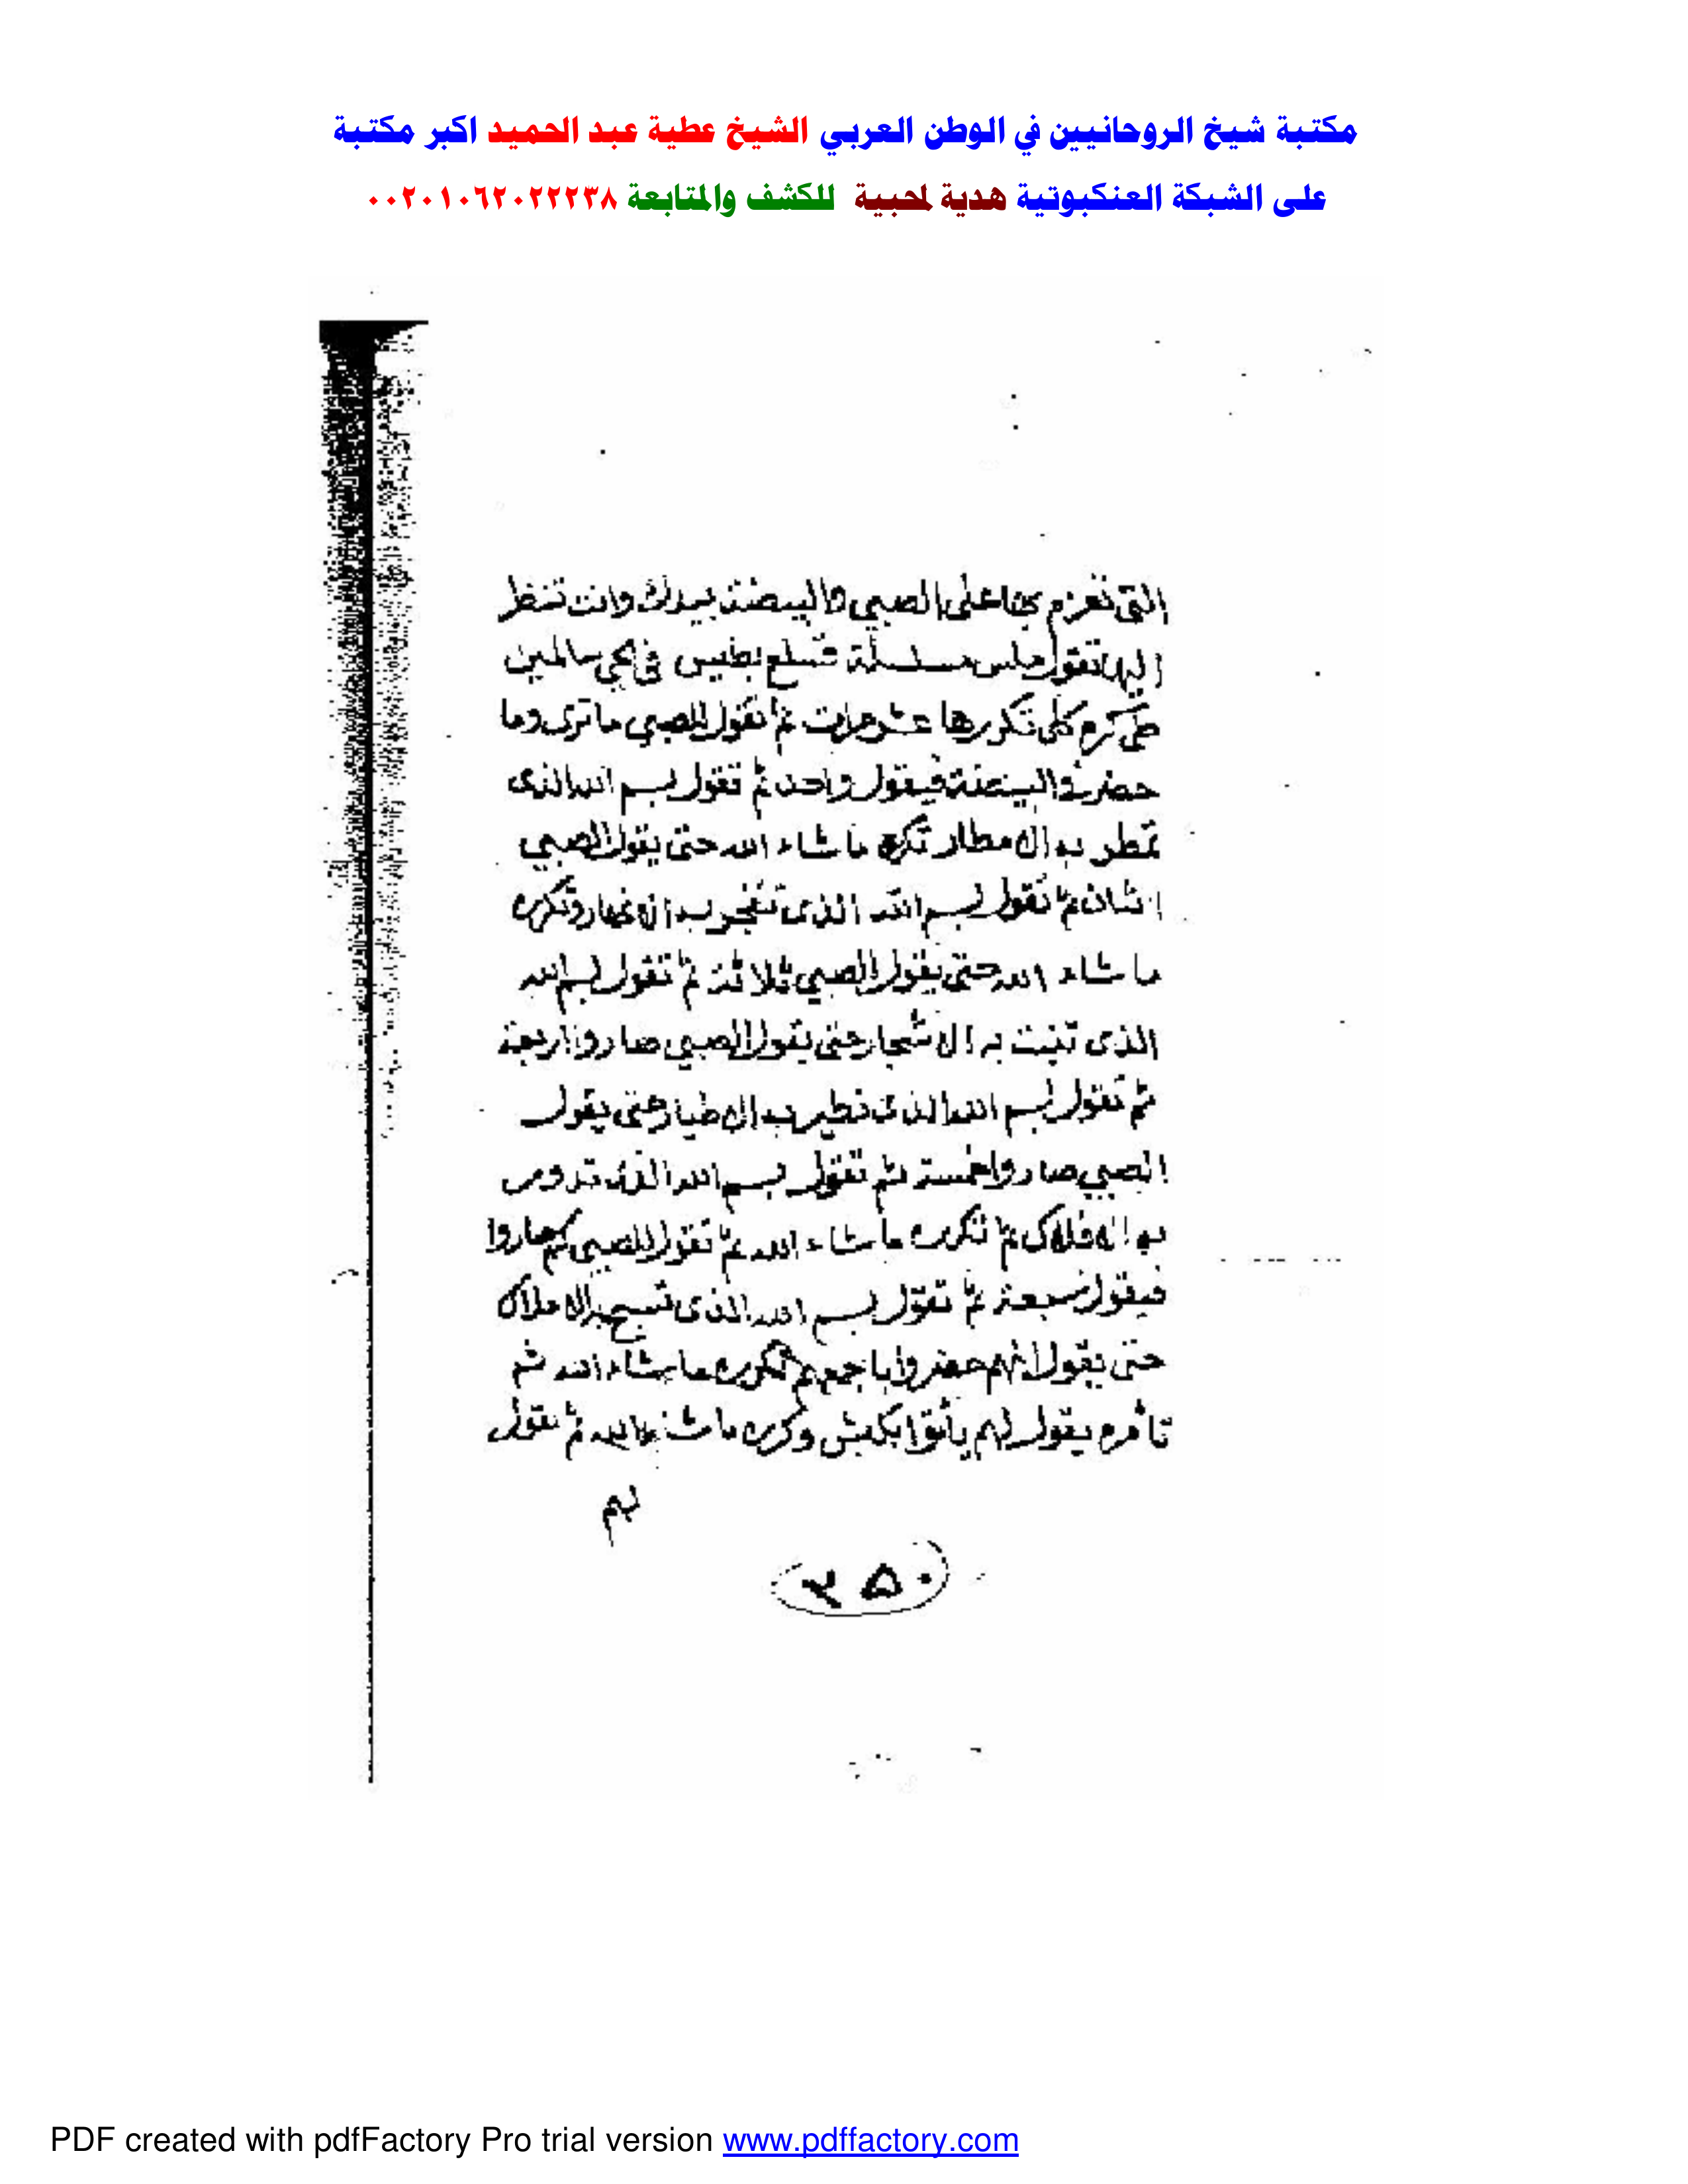 مكتبة شيخ الروحانيين في الوطن العربي الشيخ عطية عبد الحميد اكبر مكتبة
على الشبكة العنكبوتية هدية لمحبيه للكشف والمتابعة ٠٠٢٠١٠٦٢٠٢٢٢٣٨
التى تعزم بها على الصبي والبيضة بيدك وانت تنظر
اليها تقول
تكررها عشر مرات ثم تقول للصبي ما ترى وما
حضر في البيضة فيقول واحد ثم تقول بسم الله الذى
تمطر به الامطار تكرره ما شاء الله حتى يقول الصبي
اثنان ثم تقول بسم الله الذى تنفجر به الانهار وتكرره
ما شاء الله حتى يقول الصبي ثلاثة ثم تقول بسم الله
الذى تنبت به الاشجار حتى يقول الصبي صاروا اربعة
ثم تقول بسم الله الذى تطير به الاطيار حتى يقول
الصبي صاروا خمسة ثم تقول بسم الله الذى تدور
به الافلاك ثم تكرره ما شاء الله ثم تقول للصبي كم صاروا
فيقول سبعة ثم تقول بسم الله الذى تسبح به الاملاك
حتى يقول انهم حضروا باجمعهم تكرره ما شاء الله ثم
تأمره يقول لهم يأتوا بكبش وكرره ما شاء الله ثم تقول
لهم
٣٥٠
PDF created with pdfFactory Pro trial version www.pdffactory.com